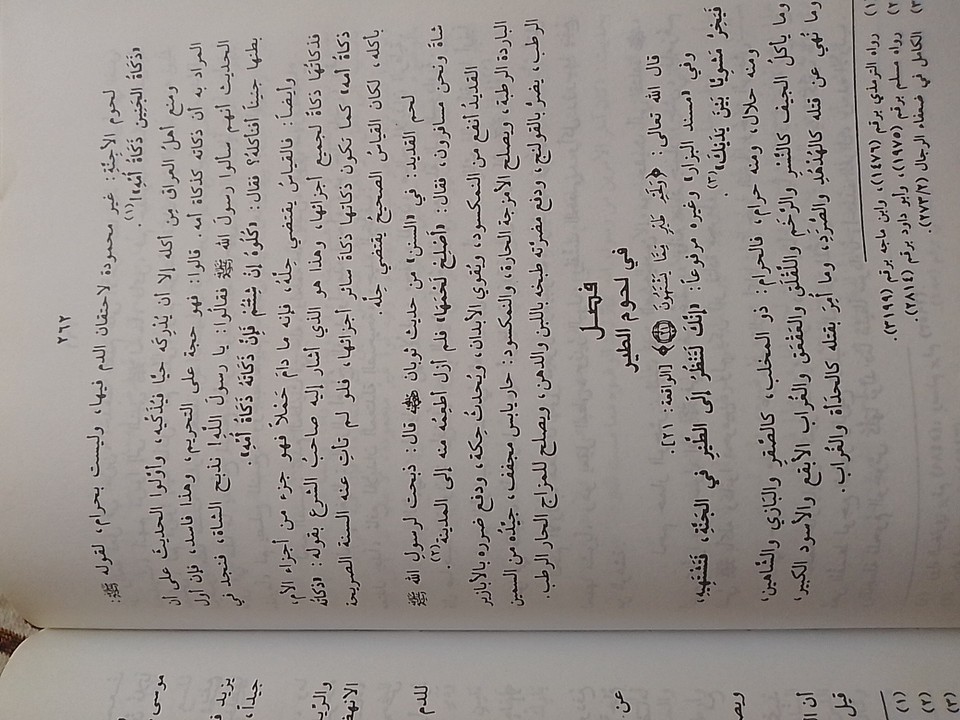 ٣٦٢
لحوم الأجِنَّة: غير محمودة لاحتقان الدم فيها، وليست بحرام، لقوله ﷺ:
«ذَكَاةُ الجَنِينِ ذَكَاةُ أُمِّهِ»(١).
ومنع أهلُ العراق مِن أكله إلا أن يُدْرِكَه حيًّا فيُذَكِّيه، وأوَّلوا الحديثَ على أن
المراد به أن ذكاته كذكاة أمه. قالوا: فهو حجة على التحريم، وهذا فاسد، فإن أول
الحديث أنهم سألوا رسول الله ﷺ فقالوا: يا رسولَ اللَّهِ! نذبح الشاةَ، فنجدُ في
بطنها جنيناً أفنأكله؟ فقال: «كُلُوهُ إِنْ شِئْتُم فَإِنَّ ذَكَاتَهُ ذَكَاةُ أُمِّهِ».
وأيضاً: فالقياسُ يقتضي حِلَّهُ، فإنه ما دامَ حَمْلاً فهو جزء من أجزاء الأم،
فذكاتُها ذكاةٌ لجميع أجزائها، وهذا هو الذي أشار إليه صاحبُ الشرع بقوله: «ذَكَاتُه
ذَكَاةُ أُمه» كما تكون ذكاتها ذكاةَ سائر أجزائها، فلو لم تأتِ عنه السنة الصريحة
بأكله، لكان القياسُ الصحيحُ يقتضي حِلَّه.
لحم القديد: في «السنن» من حديث ثوبان رضي الله عنه قال: ذبحت لرسول الله ﷺ
شاة ونحن مسافرون، فقال: «أَصْلِحْ لَحْمَهَا» فلم أزل أُطعِمُه منه إلى المدينة(٢).
القديدُ أنفع من النمكسود، ويُقوي الأبدان، ويُحدثُ حِكَّة، ودفع ضرره بالأبازير
الباردة الرطبة، ويُصلح الأمزجة الحارة، والنمكسود: حار يابس مجفف، جيِّدُه من السمين
الرطب، يضرُّ بالقولنج، ودفع مضرَّته طبخُه باللبن والدهن، ويصلح للمزاج الحار الرطب.
فصل
في لحوم الطير
قال الله تعالى: ﴿وَلَحْمِ طَيْرٍ مِمَّا يَشْتَهُونَ ۝٢١﴾ [الواقعة: ٢١].
وفي «مسند البزار» وغيره مرفوعاً: «إِنَّكَ لَتَنْظُرُ إلى الطَّيْرِ في الجَنَّةِ، فَتَشْتَهِيهِ،
فَيَخِرُّ مَشْوِيًّا بَيْنَ يَدَيْكَ»(٣).
ومنه حلال، ومنه حرام، فالحرام: ذو المخلب، كالصَّقرِ والبَازي والشَّاهين،
وما يأكلُ الجيف كالنَّسْر والرَّخَم واللَّقْلَق والعَقْعَق والغُراب الأبقع والأسود الكبير،
وما نُهِيَ عن قتله كالهُدْهُدِ والصُّرَدِ، وما أُمِرَ بقتله كالحدَأة والغراب.
(١) رواه الترمذي برقم (١٤٧٦)، وابن ماجه برقم (٣١٩٩)،
(٢) رواه مسلم برقم (١٩٧٥)، وأبو داود برقم (٢٨١٤).
(٣) الكامل في ضعفاء الرجال (٢/٢٧٣).
موسى
يزيد ف
جيداً،
والرّيـ
الانهضـ
للدم
عن
ويصـ
أن الـ
قبل
(١)
(٢)
(٣)